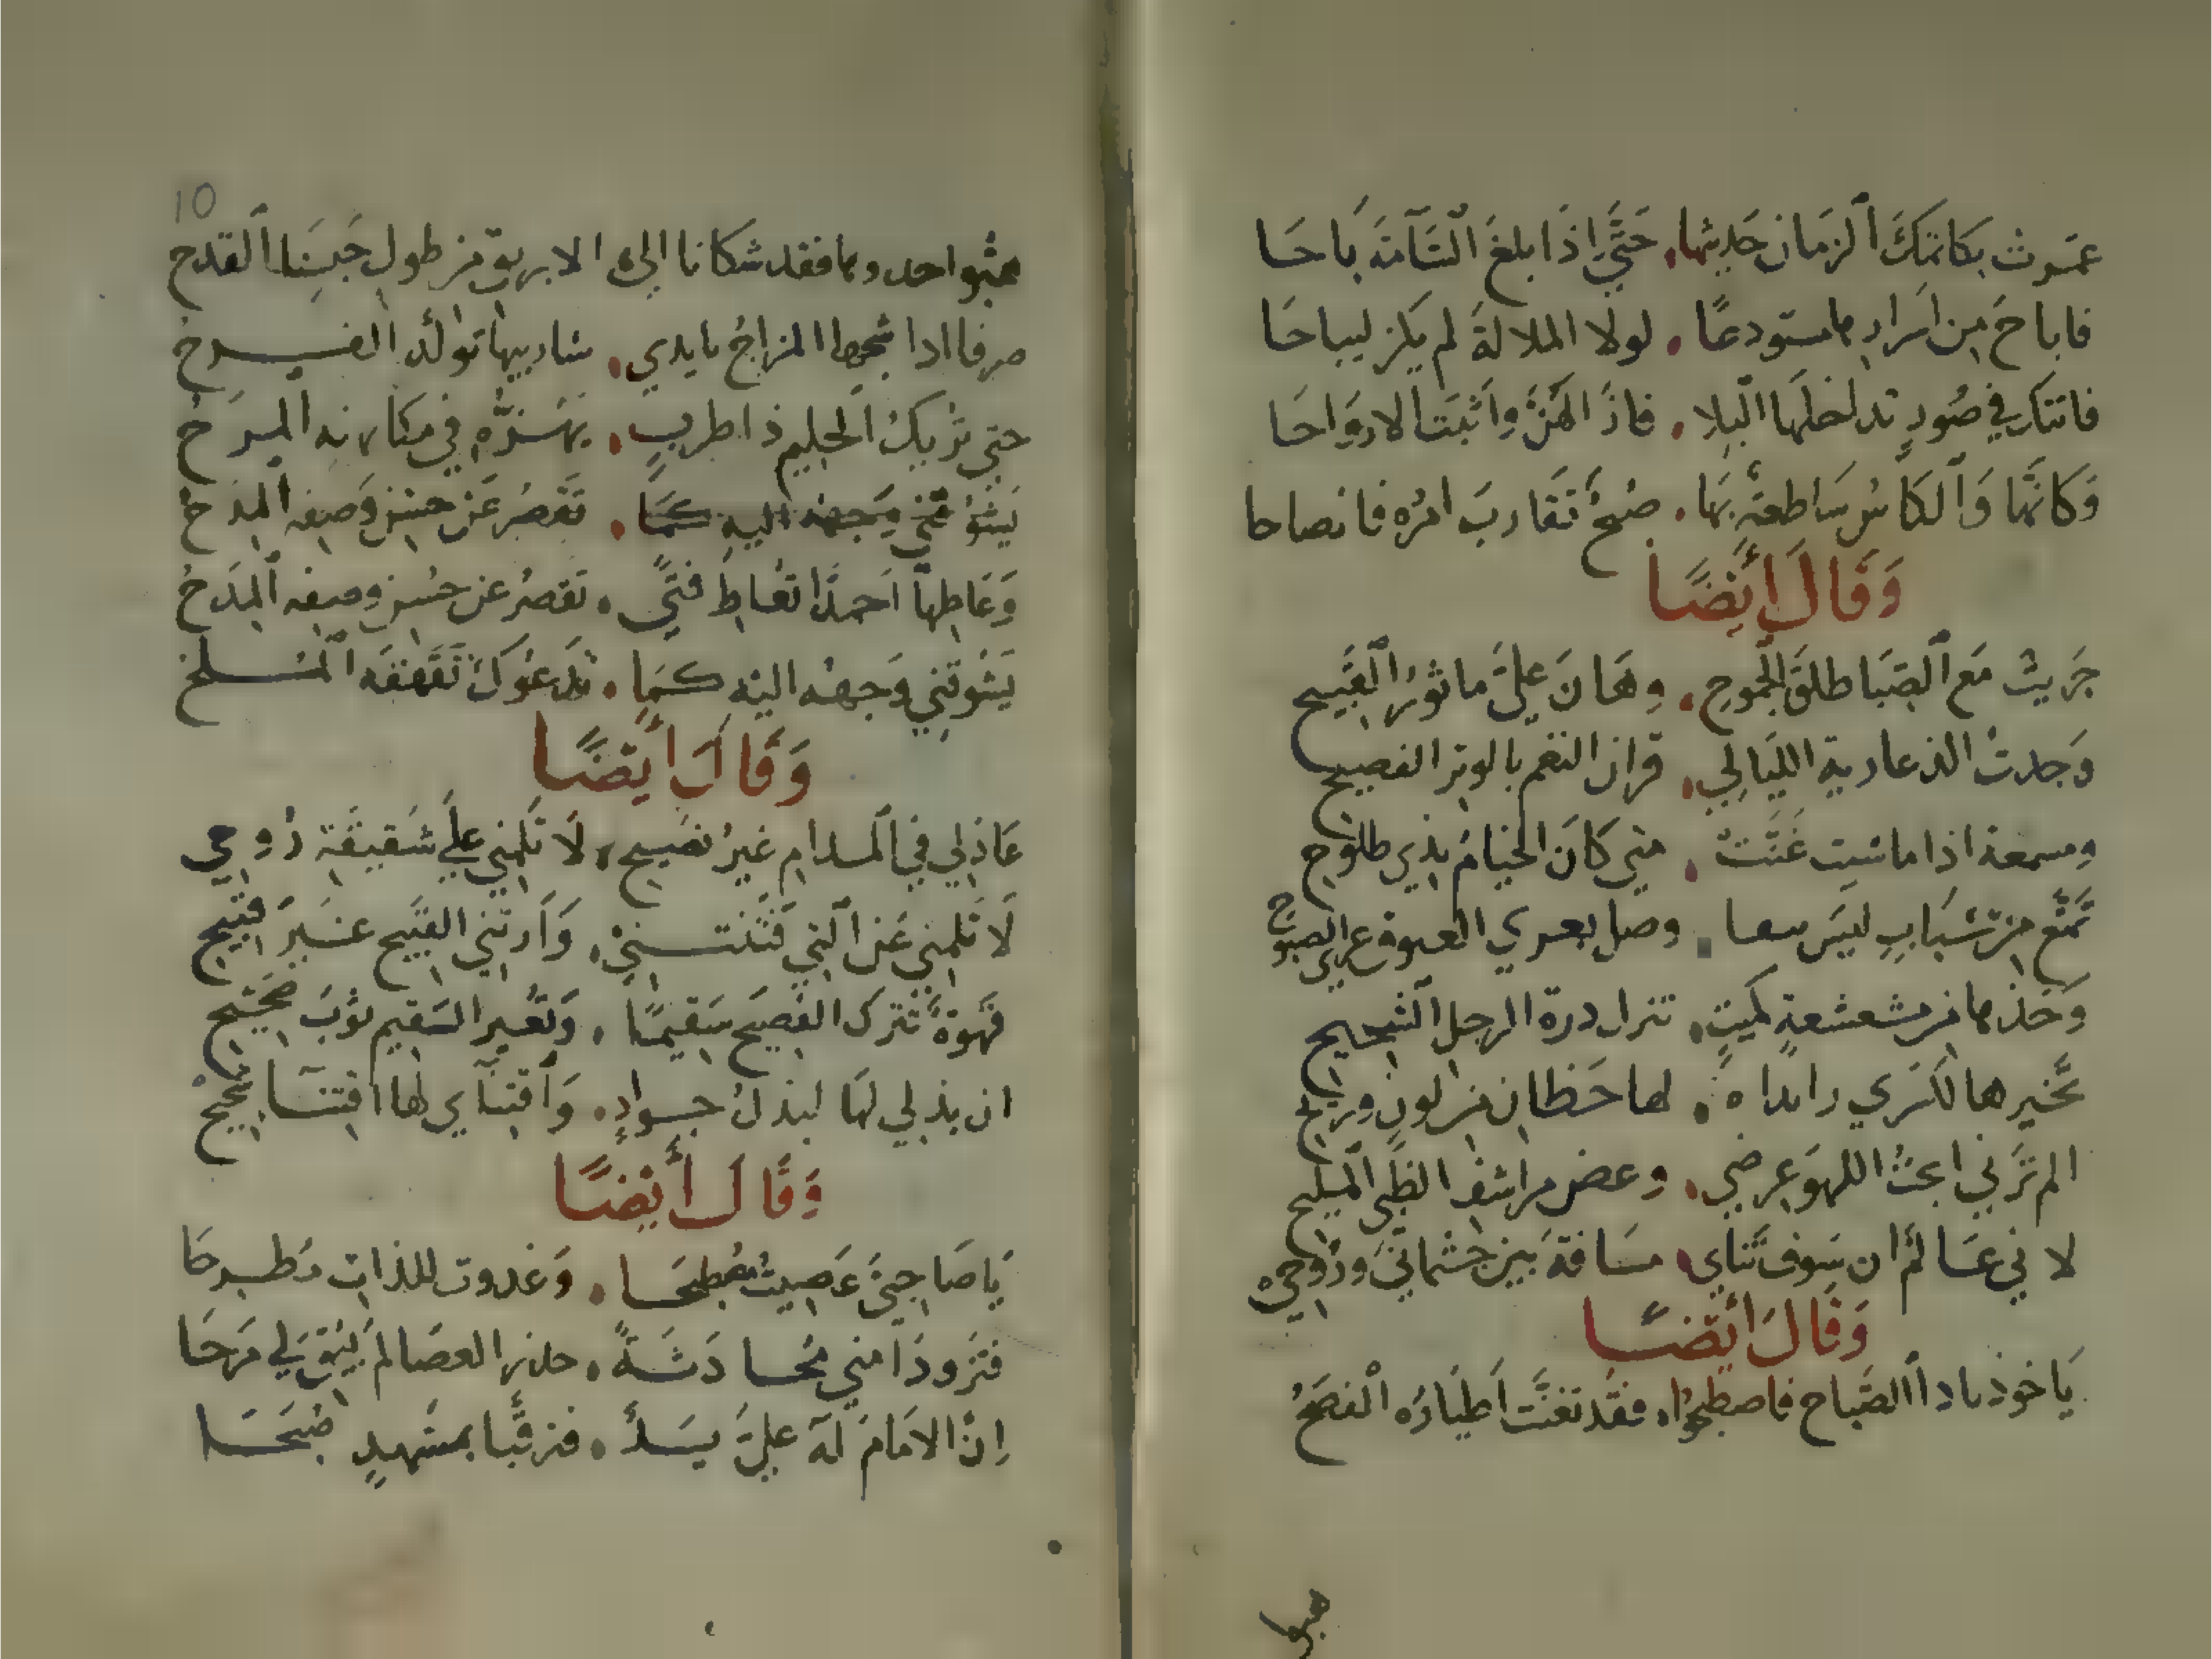 عمرت بكاتمك الزمان حديثها. حَتَّى إِذَا بلغَ السَّآمَةَ بَاحَا
فاباحَ مِن اسْرارِ ها مستودعًا. لولا الملالةَ لم يكن ليباحا
فاتتك في صُورٍ تداخلَها البِلا. فازالهنَّ واَثبتَ الارْوَاحَا
فَكانَّها وَالكَاسُ سَاطعةٌ بَها. صُبحٌ تَقَاربَ امرُه فانصاحا
وَقَالَ أَيْضًا
جَريتُ مَع الصّبَا طلقَ الجموحِ. وهَانَ عليَّ ماثورُ القَبيح
وَجدتُ الذ عارية اللّيَالي. قران النغم بالوتر الفصيح
ومسمعة اذا ماشيت غَنَّت. متى كَانَ الخيامُ بذي طلوحِ
تَمتَّع من شَبَابٍ ليسَ يبقا. وصل بعري الغبوق عري الصبوح
وَخذها من مشعشعةٍ كميتٍ. تنزل درة الرجل الشحيح
تخَّيرها لكسري رايداه. لها حَظان من لونٍ وريح
الم تَرني ابحتُ اللهوَ عِرضي. وعض مراشف الظبي المليح
لاني عَالمٌ ان سَوف تَناي. مسَافةَ بين جثماني وَرُوحي
وَقَالَ أَيْضًا
يَا خوذ بادا الصَّبَاح فاصطبحُوا. فقد تغنَّت اَطيَارُه الفصحُ
هبوا
10
هبُّوا حدوها فقد شكانا الى الابريق من طول حَبسِنَا القدح
صرفا اذا شجها المزاج بايدي. شاربيها تولد الفرح
حتى تُريكُ الحليم ذا طربٍ. يهَزُّه في مكانه المرحُ
وَعَاطِهاَ اَحمدًا تعُاطِ فتًى. تَقصرُ عن حُسنِ وصفه المِدَحُ
يَشُوقني وَجهُه اليْه كمَا. يَدعُوكَ تَفقهَه المُلحُ
وَقَالَ أَيْضًا
عَاذِلي في المدامِ غيرُ نصَيح. لَا تَلمني عليَ شَقيقَةِ رُوحي
لَا تَلمني عَن التي فَتَنتني. وَاَرتني القَبيحَ غيرَ قبيح
قَهوَةً تتركُ الصَحيحَ سَقيمًا. وَتعُير السَقيم ثوبَ صَحيح
ان بذلي لهَا لبذلُ جوادٍ. وَاقتنَآي لها اقتنَا شحيح
وَقَالَ أَيْضًا
يَا صَاحبيَّ عَصيتُ مصُطبحَا. وَغدوت للذات مطرحَا
فتَزودَا مني محَادَثَةً. حذر العصَا لم يُبْق لي مَرحَا
اِنَّ الامَامَ لَه عليَّ يَدٌ. فترقَّبا بمسَهدٍ صُبحَا